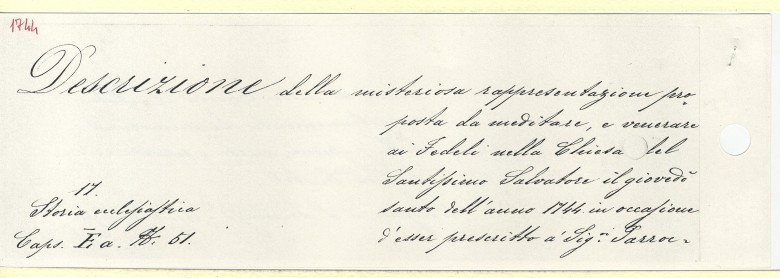 1744
Descrizione della misteriosa rappresentazione pro-
posta da meditare, e venerare
ai Fedeli nella Chiesa del
Santissimo Salvatore il giovedì
santo dell'anno 1744. in occasione
d'esser prescritto a' Sig.ri Parroc=
17.
Storia ecclesiastica
Caps. I. a. 51.